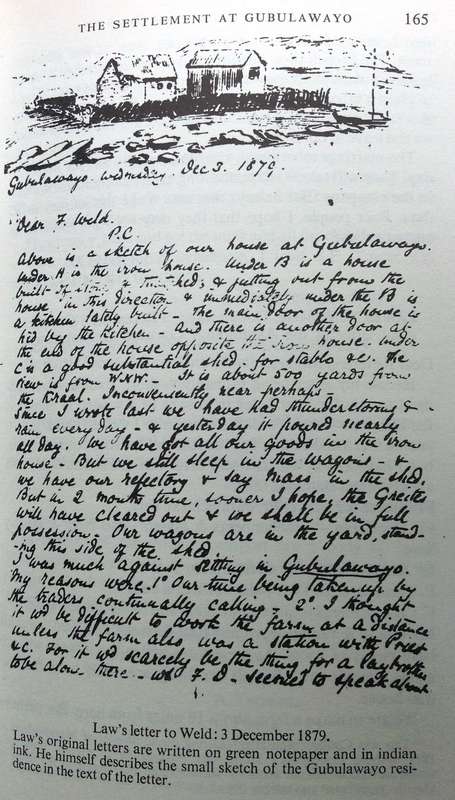 THE SETTLEMENT AT GUBULAWAYO 165
Gubulawayo. Wednesday. Dec 3. 1879.
Dear F. Weld.
P.C.
Above is a sketch of our house at Gubulawayo.
Under A is the iron house. Under B is a house
built of & thatched; & jutting out from the
house in this direction & immediately under the B is
a kitchen lately built - The main door of the house is
hid by the kitchen - And there is another door at
the end of the house opposite the iron house. Under
C is a good substantial shed. for stable &c. The
view is from W.N.W. - It is about 500 yards from
the Kraal. Inconveniently near perhaps -
Since I wrote last we have had thunderstorms &
rain every day - & yesterday it poured nearly
all day. We have got all our goods in the iron
house - But we still sleep in the wagons - &
we have our refectory & say Mass in the shed.
But in 2 months time, sooner I hope, the Greites
will have cleared out & we shall be in full
possession - Our wagons are in the yard, stand-
-ing this side of the shed.
I was much against settling in Gubulawayo.
My reasons were. 1° Our time being taken up by
the traders continually calling - 2°. I thought
it wd be difficult to work the farm at a distance
unless the farm also was a station with Priest
&c. For it wd scarcely be the thing for a laybrother
to be alone there - wh F. D - seemed to speak about
Law's letter to Weld: 3 December 1879.
Law's original letters are written on green notepaper and in indian
ink. He himself describes the small sketch of the Gubulawayo resi-
dence in the text of the letter.